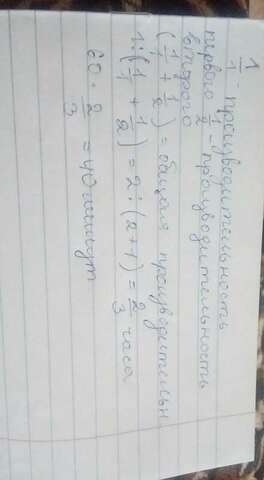 1/1 - производительность
первого 1/2 - производительность
второго
(1/1 + 1/2) = общая производительн
1 : (1/1 + 1/2) = 2 : (2+1) = 2/3 часа
60 · 2/3 = 40 минут